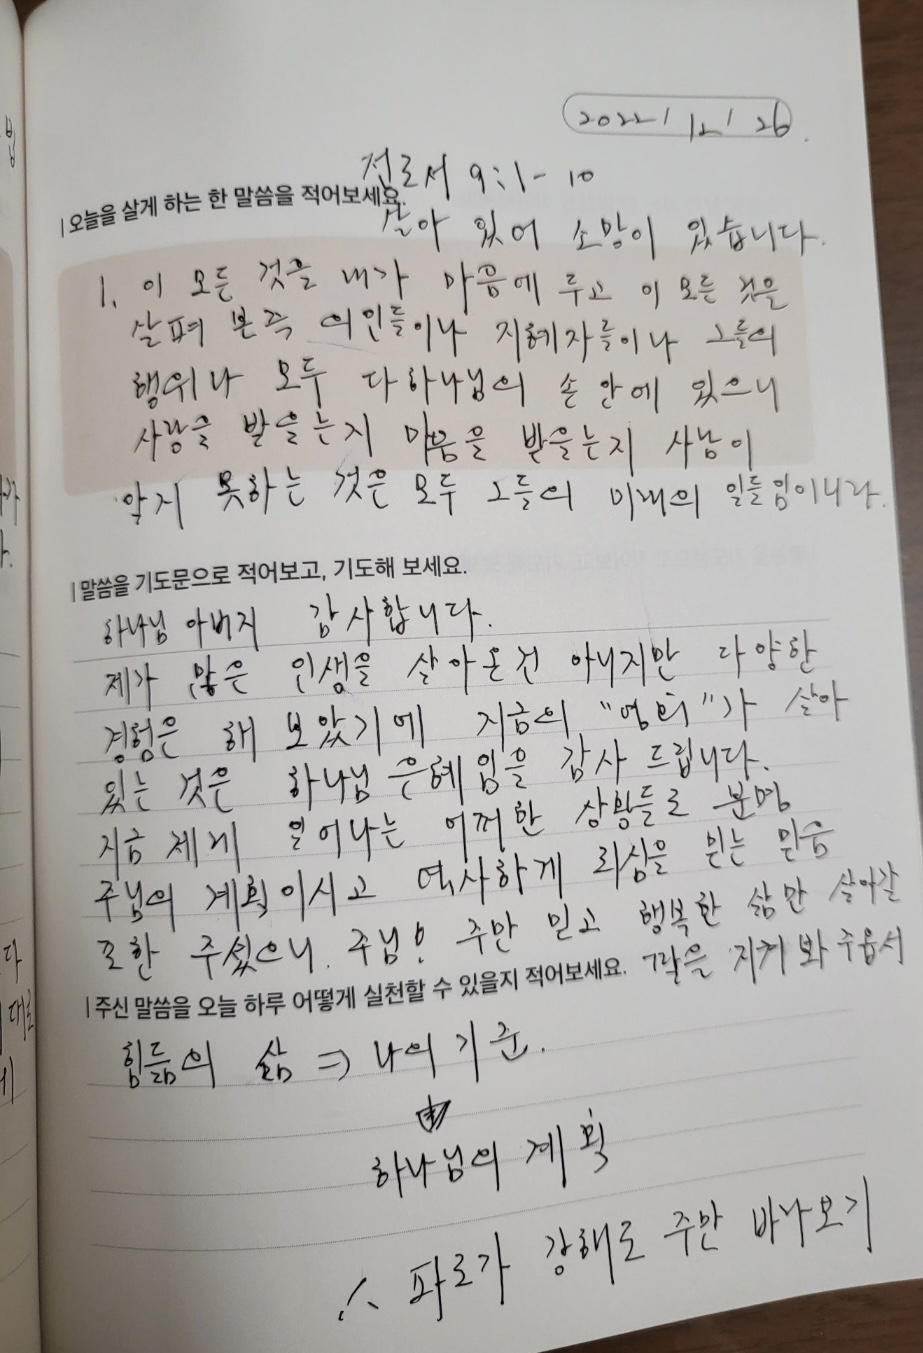 2022/12/26.
전도서 9:1-10
|오늘을 살게 하는 한 말씀을 적어보세요.
살아 있어 소망이 있습니다.
1. 이 모든 것을 내가 마음에 두고 이 모든 것을
살펴 본즉 의인들이나 지혜자들이나 그들의
행위나 모두 다 하나님의 손 안에 있으니
사랑을 받을는지 미움을 받을는지 사람이
알지 못하는 것은 모두 그들의 미래의 일들임이니라.
|말씀을 기도문으로 적어보고, 기도해 보세요.
하나님 아버지 감사합니다.
제가 많은 인생을 살아온건 아니지만 다양한
경험은 해 보았기에 지금의 " "가 살아
있는 것은 하나님 은혜임을 감사 드립니다.
지금 제게 일어나는 어떠한 상황들로 분명
주님의 계획이시고 역사하심을 믿는 믿음
또한 주셨으니. 주님! 주만 믿고 행복한 삶만 살아갈
지켜 봐 주옵서
|주신 말씀을 오늘 하루 어떻게 실천할 수 있을지 적어보세요.
힘듦의 삶 => 나의 기준.
하나님의 계획
∴ 파도가 강해도 주만 바라보기